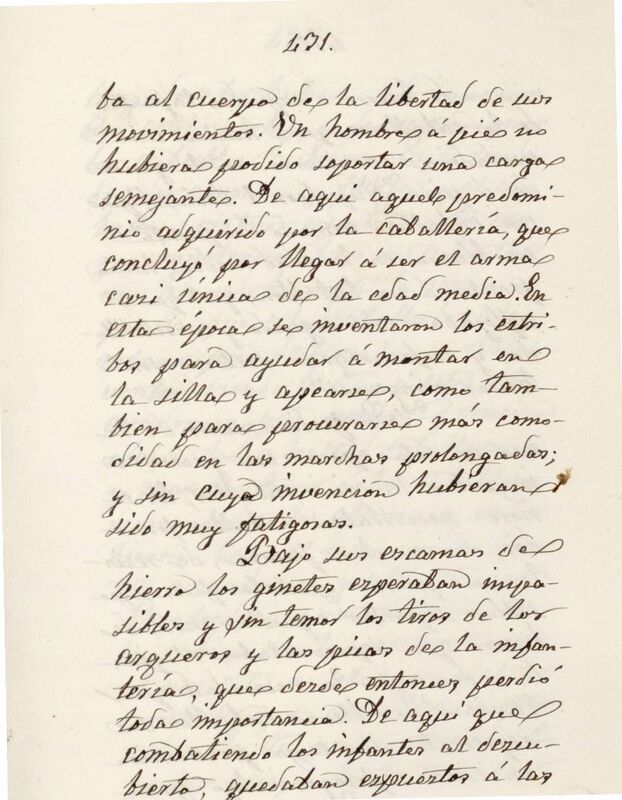 431.
ba al cuerpo de la libertad de sus
movimientos. Un hombre á pié no
hubiera podido soportar una carga
semejante. De aqui aquel predomi-
nio adquirido por la caballería, que
concluyó por llegar á ser el arma
casi única de la edad media. En
esta época se inventaron los estri-
bos para ayudar á montar en
la silla y apearse, como tam-
bien para procurarse más como-
didad en las marchas prolongadas;
y sin cuya invencion hubieran
sido muy fatigosas.
Bajo sus escamas de
hierro los ginetes esperaban impa-
sibles y sin temor los tiros de los
arqueros y las picas de la infan-
tería, que desde entonces perdió
toda importancia. De aqui que
combatiendo los infantes al descu-
bierto, quedaban espuestos á las